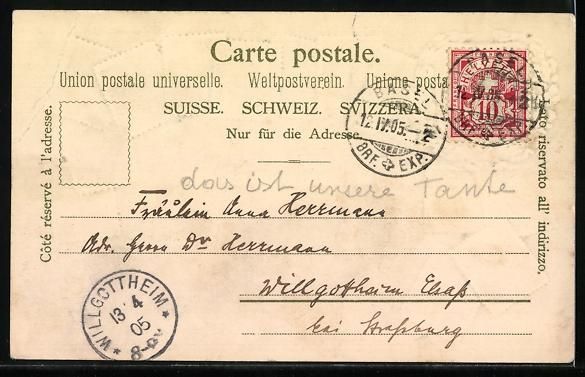 Carte postale.
Union postale universelle. Weltpostverein. Unione posta
SUISSE. SCHWEIZ. SVIZZERA.
Nur für die Adresse.
Côté réservé à l'adresse.
Lato riservato all' indirizzo.
HELVETIA
10
BASEL
12.IV.05.
2
BRF. EXP.
das ist unsere Tante
Fräulein Anna Herrmann
Adr. Herrn Dr Herrmann
Willgottheim Elsaß
bei Straßburg
WILLGOTTHEIM
13 4
05